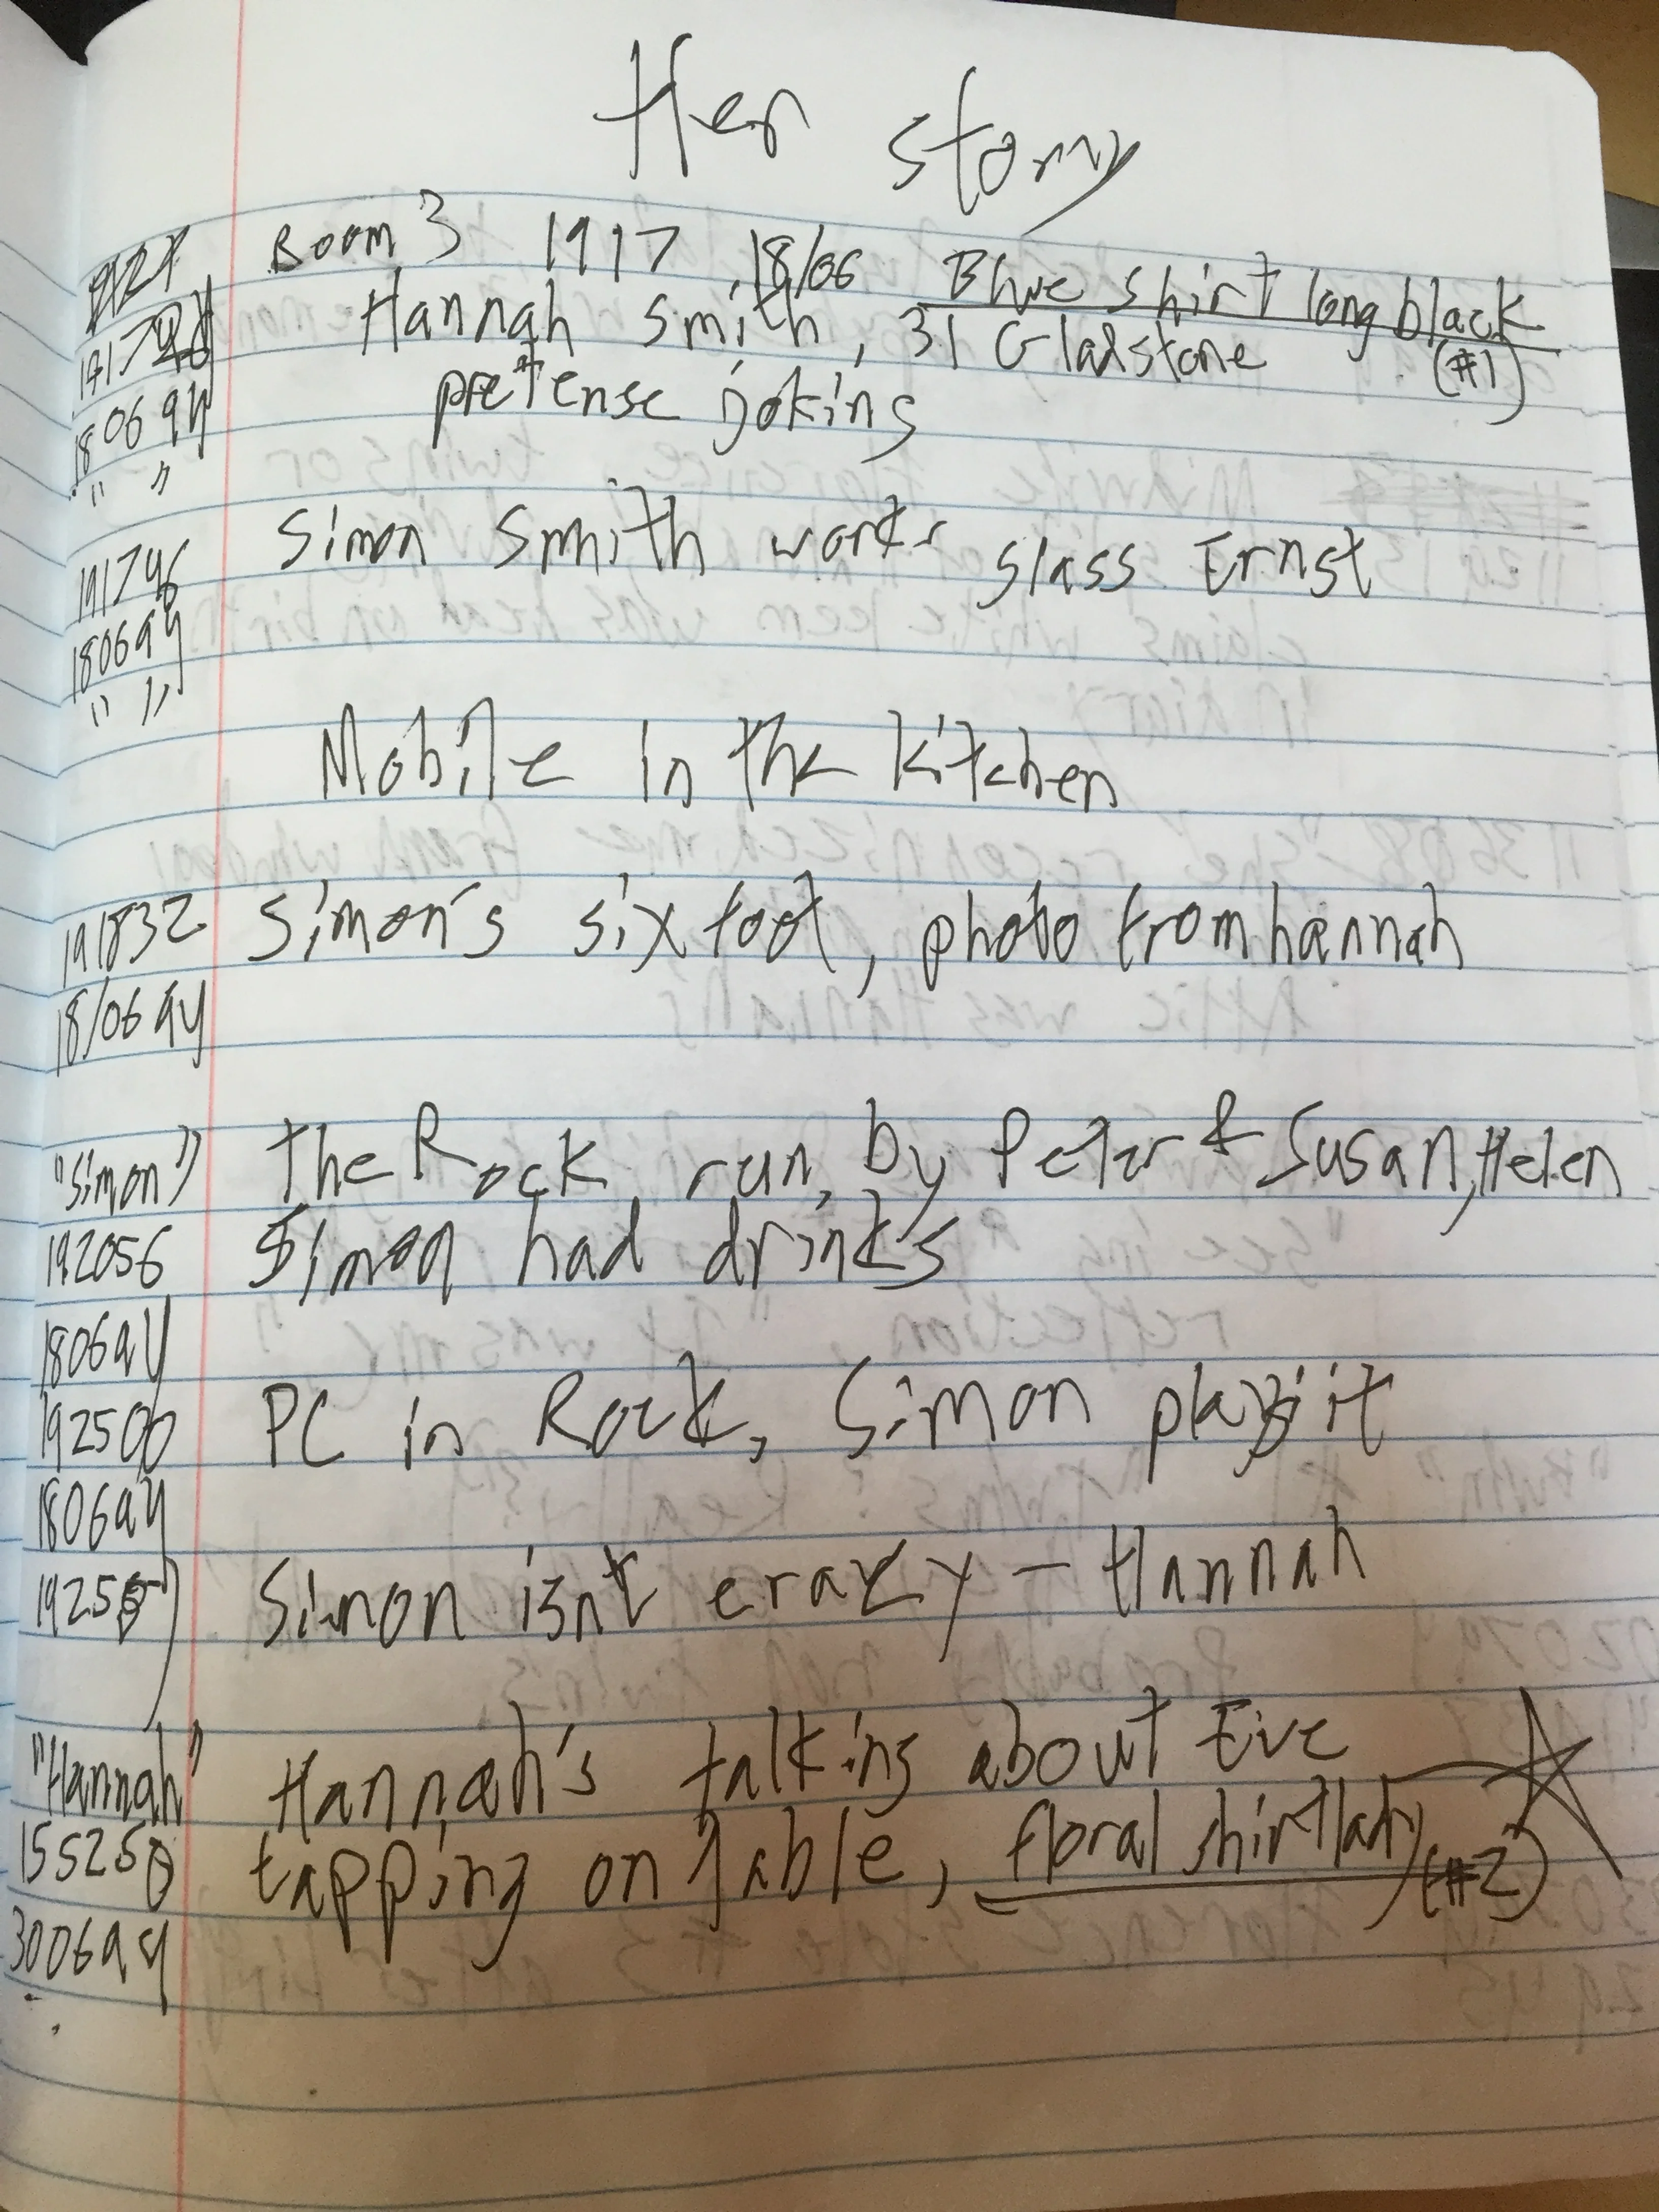 Her story
Room 3 1917 18/06 Blue shirt long black
Hannah Smith, 31 Gladstone (#1)
180694
" "
pretense joking
Simon Smith works glass Ernst
191746
180694
" "
Mobile in the kitchen
191832 Simon's six foot, photo from hannah
18/06 94
"Simon" The Rock run by Peter & Susan, Helen
192056 Simon had drinks
180694
192506 PC in Rock, Simon plays it
180694
Simon isnt crazy - Hannah
"Hannah" Hannah's talking about Eve
155250 tapping on table, floral shirt lady (#2)
300694